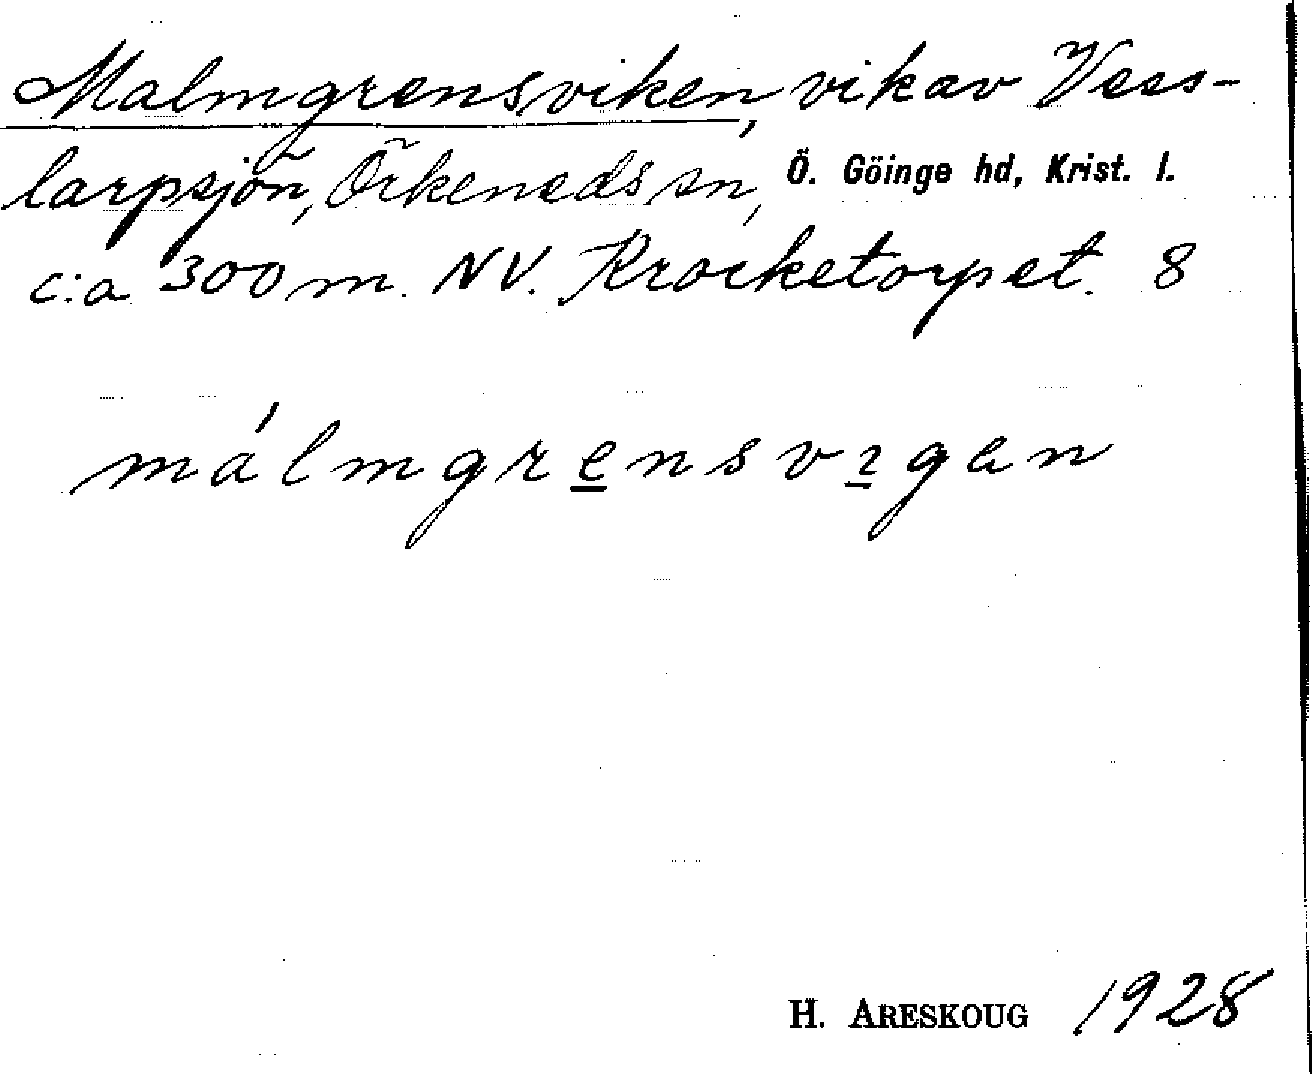 Malmgrensviken, vik av Vess-
larpsjön, Örkeneds sn, Ö. Göinge hd, Krist. l.
c:a 300 m. NV. Krocketorpet. 8
málmgrensvıgan
H. ARESKOUG 1928